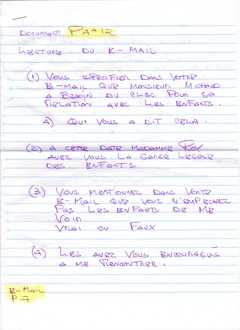 Document PAA12
Lecture du E-Mail
(1) Vous spécifier dans votre
E-Mail que Monsieur Michaud
a besoin du CLSC pour sa
relation avec les enfants.
A) Qui vous a dit cela.
(2) A cette date Madame Roy
avez vous la garde légale
des enfants
(3) Vous mentionnez dans votre
E-Mail que vous n'empechez
pas les enfants de me
voir
Vrai ou Faux
(4) Les avez vous encouragés
a me rencontrer.
E-Mail
P 7